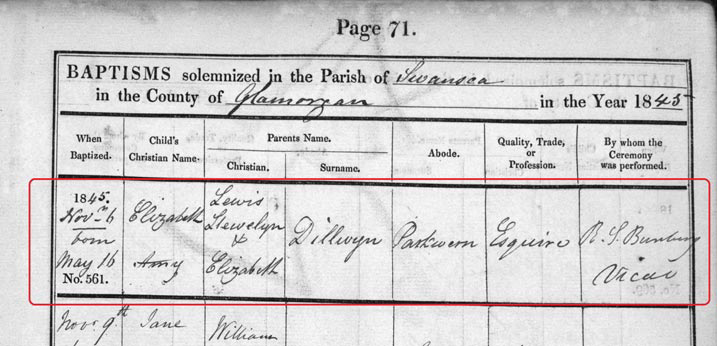 Page 71.
BAPTISMS solemnized in the Parish of Swansea
in the County of Glamorgan in the Year 1845
When Baptized.
Child's Christian Name.
Parents Name.
Christian.
Surname.
Abode.
Quality, Trade, or Profession.
By whom the Ceremony was performed.
1845.
Novr. 6
born
May 16
No. 561.
Elizabeth
Amy
Lewis
Llewelyn
&
Elizabeth
Dillwyn
Parkwern
Esquire
Vicar
Novr. 9th
Jane
William